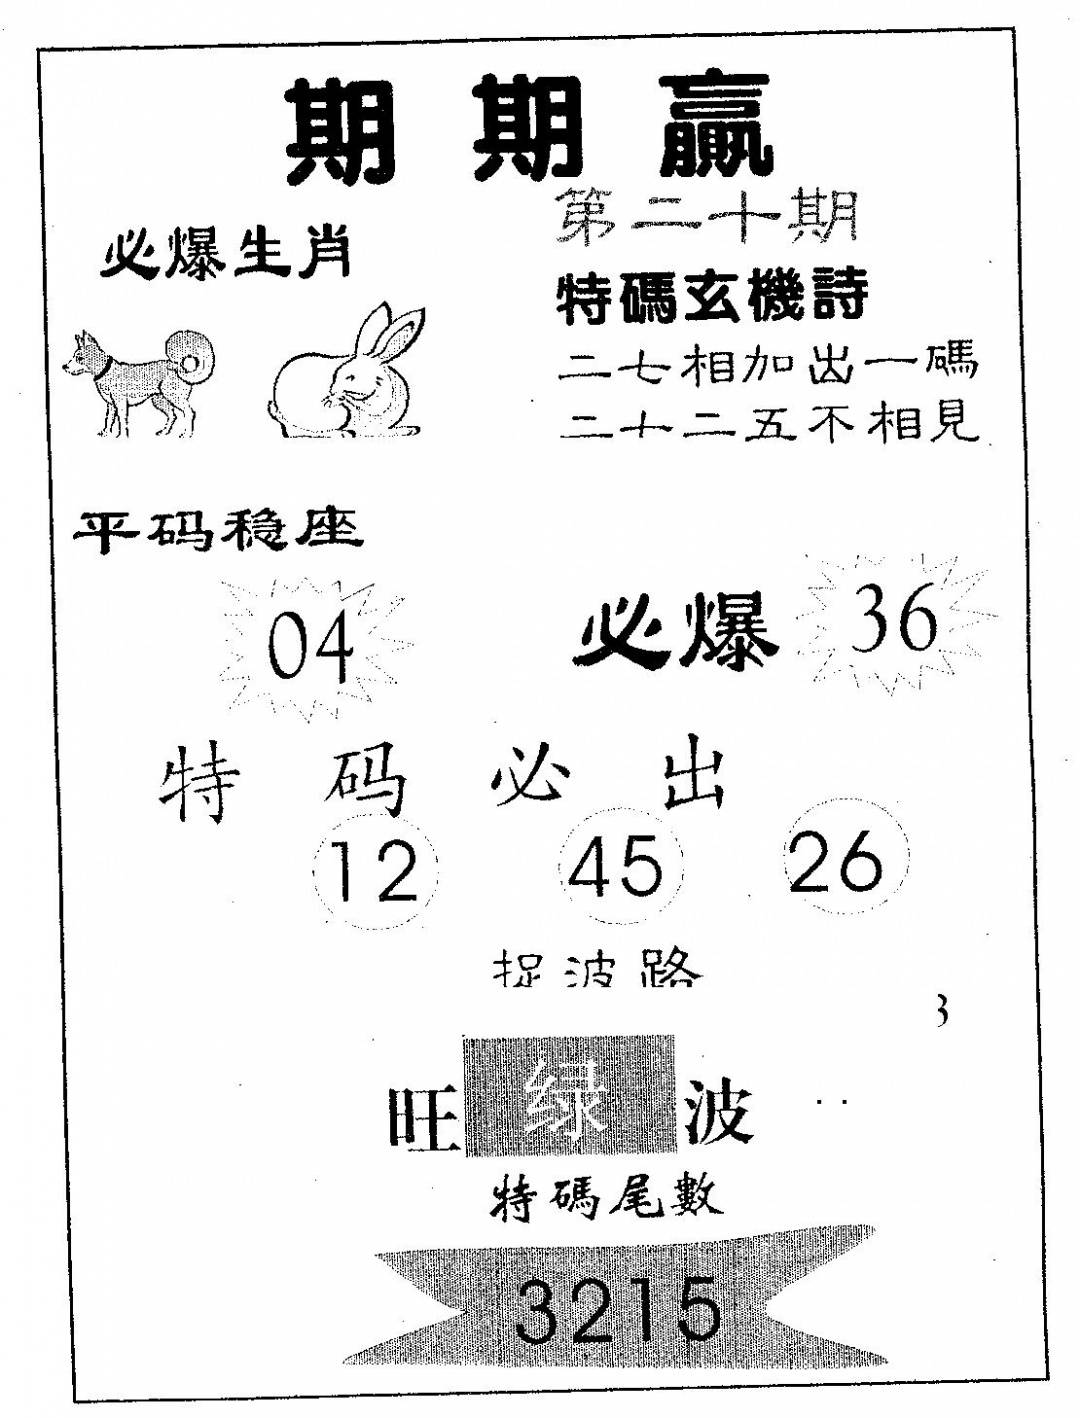 期期贏
第二十期
必爆生肖
特碼玄機詩
二七相加出一碼
二十二五不相見
平码稳座
04
必爆 36
特码必出
12 45 26
捉波路
3
旺绿波
特碼尾數
3215